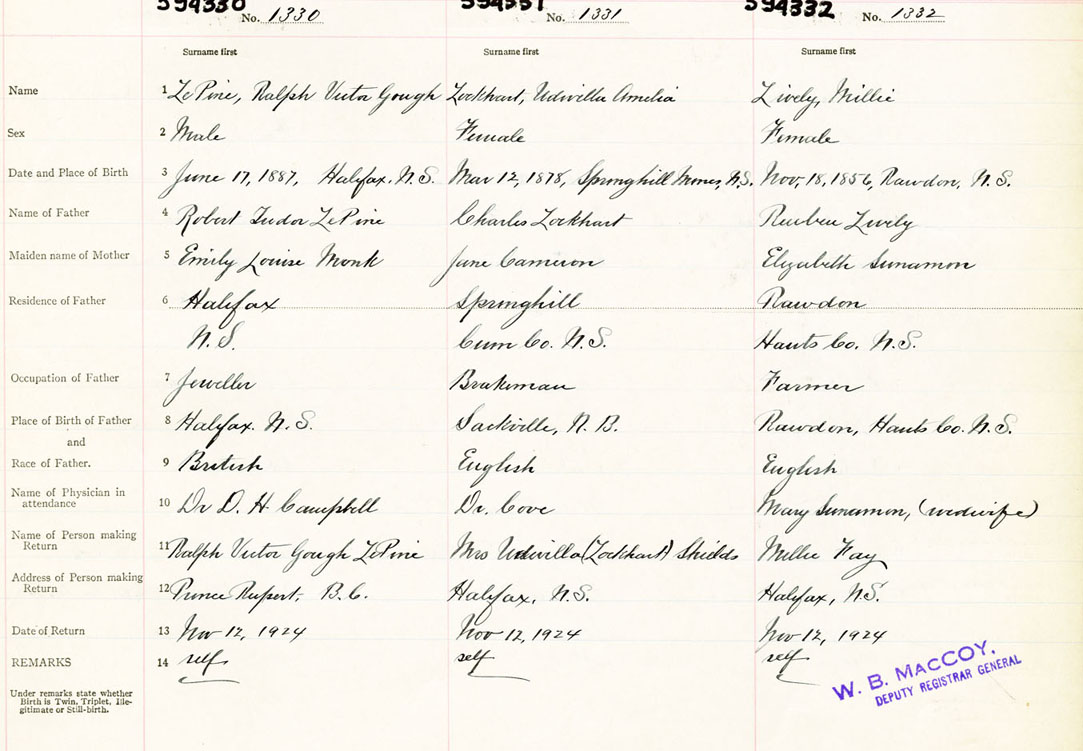 594330 594331 594332
No. 1330 No. 1331 No. 1332
Surname first Surname first Surname first
Name 1 LePine, Ralph Victor Gough Lockhart, Udivilla Amelia Lively, Millie
Sex 2 Male Female Female
Date and Place of Birth 3 June 17, 1887, Halifax, N.S. Mar 12, 1878, Springhill Mines, N.S. Nov, 18, 1856, Rawdon, N.S.
Name of Father 4 Robert Tudor LePine Charles Lockhart Reuben Lively
Maiden name of Mother 5 Emily Louise Monk Jane Cameron Elizabeth Sunamon
Residence of Father 6 Halifax Springhill Rawdon
N.S. Cum Co. N.S. Hants Co. N.S.
Occupation of Father 7 Jeweller Brakeman Farmer
Place of Birth of Father 8 Halifax. N.S. Sackville, N.B. Rawdon, Hants Co. N.S.
and
Race of Father. 9 British English English
Name of Physician in
attendance 10 Dr D. H. Campbell Dr. Cove Mary Sunamon, (midwife)
Name of Person making
Return 11 Ralph Victor Gough LePine Mrs Udivilla (Lockhart) Shields Millie Fay
Address of Person making
Return 12 Prince Rupert, B.C. Halifax, N.S. Halifax, N.S.
Date of Return 13 Nov 12, 1924 Nov 12, 1924 Nov 12, 1924
REMARKS 14 self self self
Under remarks state whether
Birth is Twin, Triplet, Ille-
gitimate or Still-birth.
W. B. MacCOY,
DEPUTY REGISTRAR GENERAL